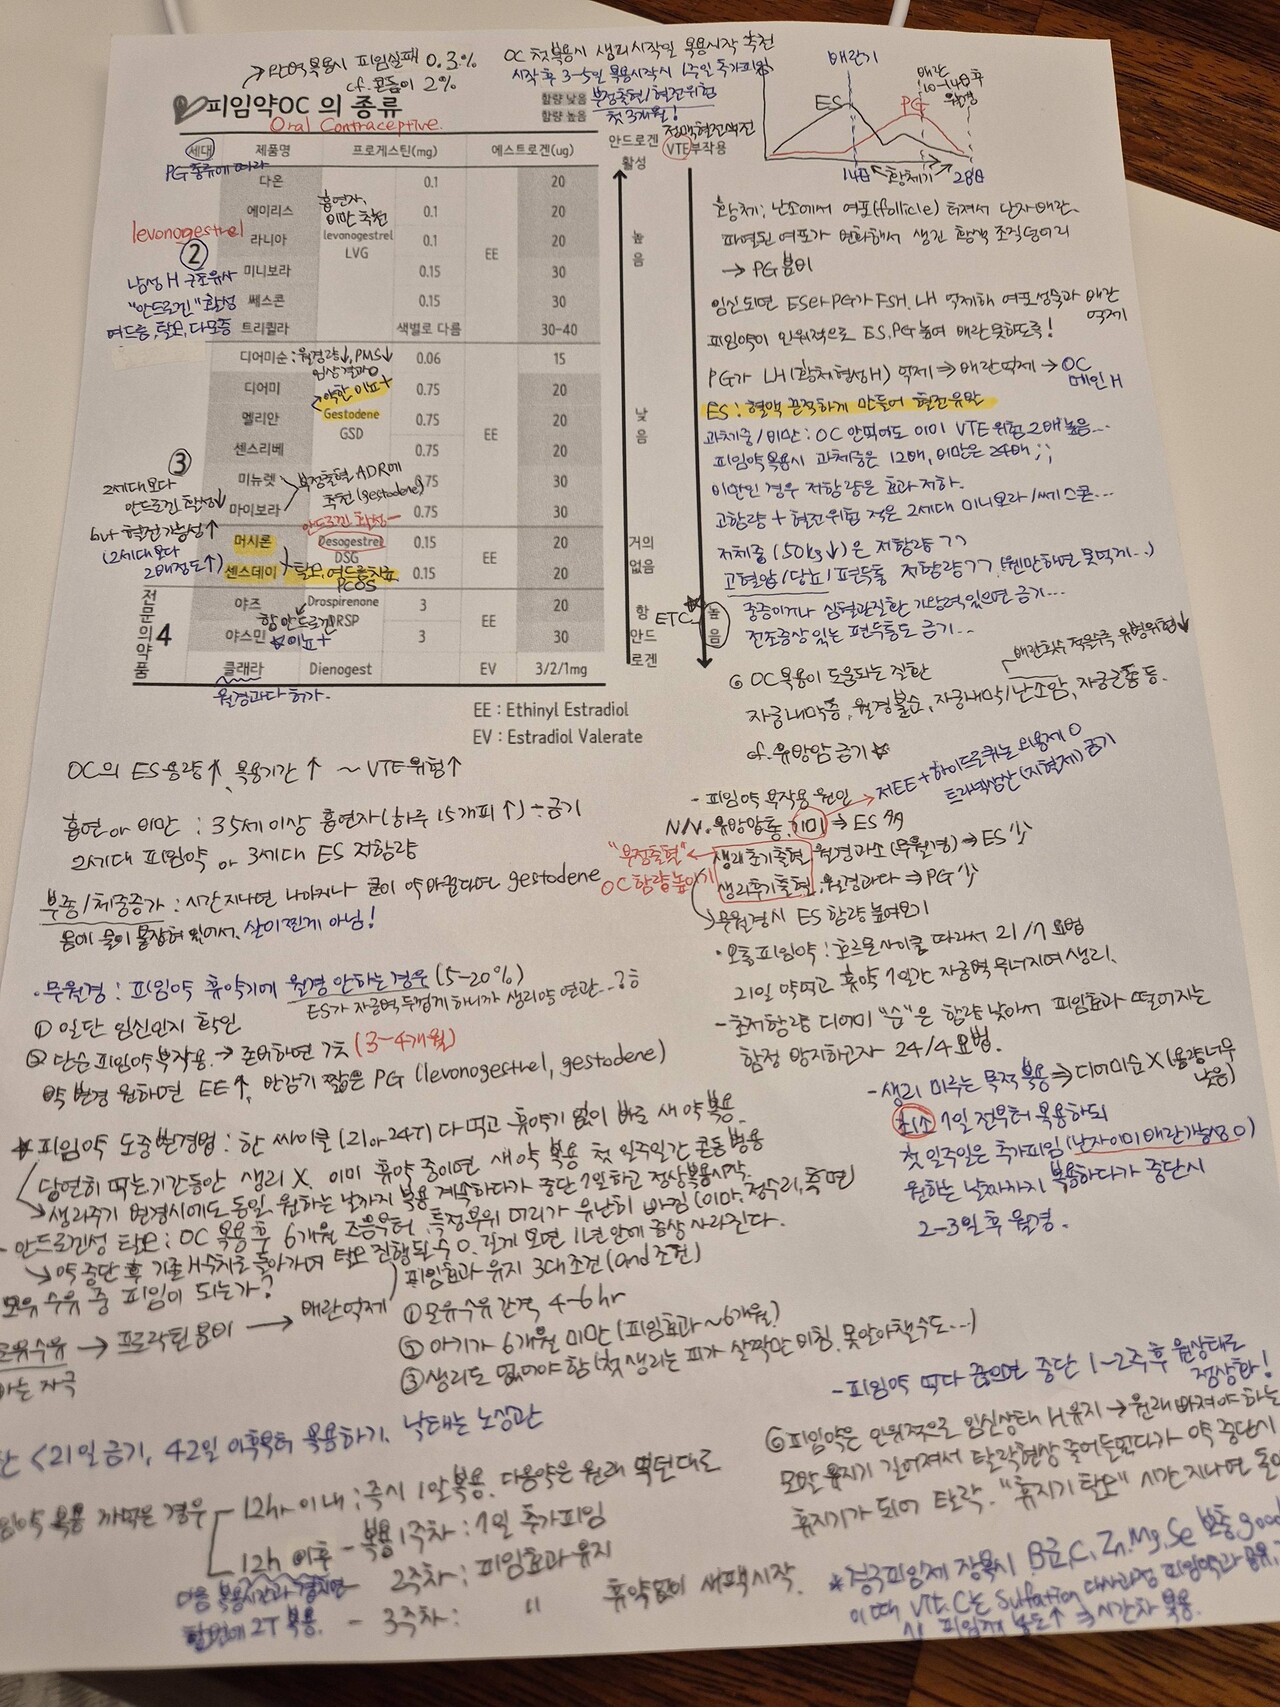 → 완벽복용시 피임실패 0.3%
cf. 콘돔이 2%
OC 첫복용시 생리시작일 복용시작 추천
시작 후 3-5일 복용시작시 1주일 추가피임
부정출혈/혈전위험
첫 3개월!
정맥혈전색전
피임약OC 의 종류
Oral Contraceptive
함량 낮음
함량 높음
세대 제품명 프로게스틴(mg) 에스트로겐(ug) 안드로겐 활성 VTE부작용
PG종류에 따라
다온 0.1 20
에이리스 0.1 20
라니아 levonogestrel LVG 0.1 EE 20
미니보라 0.15 30
쎄스콘 0.15 30
트리퀼라 색별로 다름 30-40
흡연자, 비만 추천
levonogestrel
②
남성 H 구조유사
"안드로겐" 활성
여드름, 탈모, 다모증
높음
디어미순 : 월경량↓, PMS↓ 0.06 15
임상결과O
디어미 0.75 20
약한 이뇨+
멜리안 Gestodene GSD 0.75 EE 20
센스리베 0.75 20
미뉴렛 0.75 30
마이보라 0.75 30
부정출혈 ADR에
추천(gestodene)
낮음
③
2세대보다
안드로겐 활성↓
but 혈전가능성↑
(2세대보다
2배정도↑)
안드로겐 활성—
머시론 Desogestrel DSG 0.15 EE 20
센스데이 0.15 20
탈모, 여드름치료
PCOS
거의 없음
전문의약품 4
야즈 Drospirenone DRSP 3 EE 20
야스민 3 30
항안드로겐
이뇨+
클래라 Dienogest EV 3/2/1mg
월경과다 허가.
항안드로겐
ETC
높음
EE : Ethinyl Estradiol
EV : Estradiol Valerate
배란기
배란
10-14일후
월경
ES
PG
14일 황체기 28일
황체 ; 난소에서 여포(follicle) 터져서 난자배란.
파열된 여포가 변화해서 생긴 황색 조직덩어리
→ PG 분비
임신되면 ES와 PG가 FSH, LH 억제해 여포성숙과 배란
억제
피임약이 인위적으로 ES, PG높여 배란못하도록!
PG가 LH(황체형성H) 억제 ⇒ 배란억제 → OC
메인 H
ES : 혈액 끈적하게 만들어 혈전유발
과체중/비만 : OC 안먹어도 이미 VTE 위험 2배 높음...
피임약복용시 과체중은 12배, 비만은 24배 ; ;
비만인 경우 저함량은 효과 저하.
고함량 + 혈전위험 적은 2세대 미니보라/쎄스콘...
저체중 (50kg↓)은 저함량 ㄱㄱ
고혈압/당뇨/편두통 저함량ㄱㄱ (웬만하면 못먹게..)
중증이거나 심혈관질환 가능력있으면 금기...
전조증상 있는 편두통도 금기...
배란횟수 적을수록 유병위험↓
OC 복용이 도움되는 질환
자궁내막증, 월경불순, 자궁내막/난소암, 자궁근종 등.
cf. 유방암 금기 ☆
OC의 ES용량↑, 복용기간↑ ~ VTE위험↑
흡연 or 비만 : 35세이상 흡연자(하루 15개피↑) - 금기
2세대 피임약 or 3세대 ES 저함량
부종/체중증가 : 시간지나면 나아지나 굳이 약 바꾼다면 gestodene
몸에 물이 몰창혀 있어서, 살이찐게 아님!
· 무월경 : 피임약 휴약기에 월경 안하는 경우 (5-20%)
ES가 자궁벽 두껍게 하니까 생리양 연관...
① 일단 임신인지 확인
② 단순 피임약부작용 → 존버하면 ㄱㅊ (3-4개월)
약 변경 원하면 EE↑, 반감기 짧은 PG (levonogestrel, gestodene)
☆ 피임약 도중변경법 : 한 싸이클 (21 or 24T) 다 먹고 휴약기 없이 바로 새 약 복용
당연히 먹는기간동안 생리 X. 이미 휴약 중이면 새 약 복용 첫 일주일간 콘돔 병용
생리주기 변경시에도 동일. 원하는 날까지 복용 계속하다가 중단 7일하고 정상복용시작.
- 안드로겐성 탈모 : OC 복용 후 6개월 즈음부터, 특정부위 머리가 유난히 빠짐 (이마, 정수리, 측면)
→ 약 중단 후 기존 H수치로 돌아가며 탈모 진행될 수 O. 길게 보면 1년 안에 증상 사라진다.
- 피임약 부작용 원인
저EE + 하이드로퀴논 외용제 O
트라넥삼산(지혈제) 금기
N/V, 유방암통, 기미 ⇒ ES 多
"부정출혈" ← 생리초기출혈, 월경과소 (무월경) ⇒ ES 少
OC 함량높이기 생리후기출혈, 월경과다 ⇒ PG 少
무월경시 ES 함량 높여보기
· 보통 피임약 : 호르몬사이클 따라서 21/7 요법
21일 약먹고 휴약 7일간 자궁벽 무너지며 생리.
- 초저함량 디어미 "순"은 함량 낮아서 피임효과 떨어지는
함정 방지하고자 24/4 요법.
- 생리 미루는 목적 복용 ⇒ 디어미순 X (용량너무
낮음)
최소 7일 전부터 복용하되
첫 일주일은 추가피임 (난자이미 배란가능성 O)
원하는 날짜까지 복용하다가 중단시
2-3일 후 월경.
모유 수유 중 피임이 되는가?
모유수유 → 프로락틴 분비 → 배란억제
자극
피임효과 유지 3대조건 (and 조건)
① 모유수유 간격 4-6hr
② 아기가 6개월 미만 (피임효과 ~6개월)
③ 생리도 없어야 함 (첫 생리는 피가 살짝만 비침. 못알아챌수도...)
<21일 금기, 42일 이후부터 복용하기. 낙태는 노상관
복용 까먹은 경우
12hr 이내 ; 즉시 1알 복용. 다음약은 원래 먹던대로
12h 이후 - 복용 1주차 : 7일 추가피임
2주차 : 피임효과 유지
- 3주차 : " 휴약없이 새팩시작.
다음 복용시간과 겹치면
한번에 2T 복용.
- 피임약 먹다 끊으면 중단 1~2주후 원상태로
정상화!
피임약은 인위적으로 임신상태 H유지 → 원래 빠져야 하는
모발 휴지기 길어져서 탈락현상 줄어들었다가 약 중단시
휴지기가 되어 탈락. "휴지기 탈모" 시간 지나면
* 경구피임제 장복시 B군, C, Zn, Mg, Se 보충 good
이때 Vit.C는 Sulfation 대사과정 피임약과 공유
시 피임제 농도↑ ⇒ 시간차 복용.